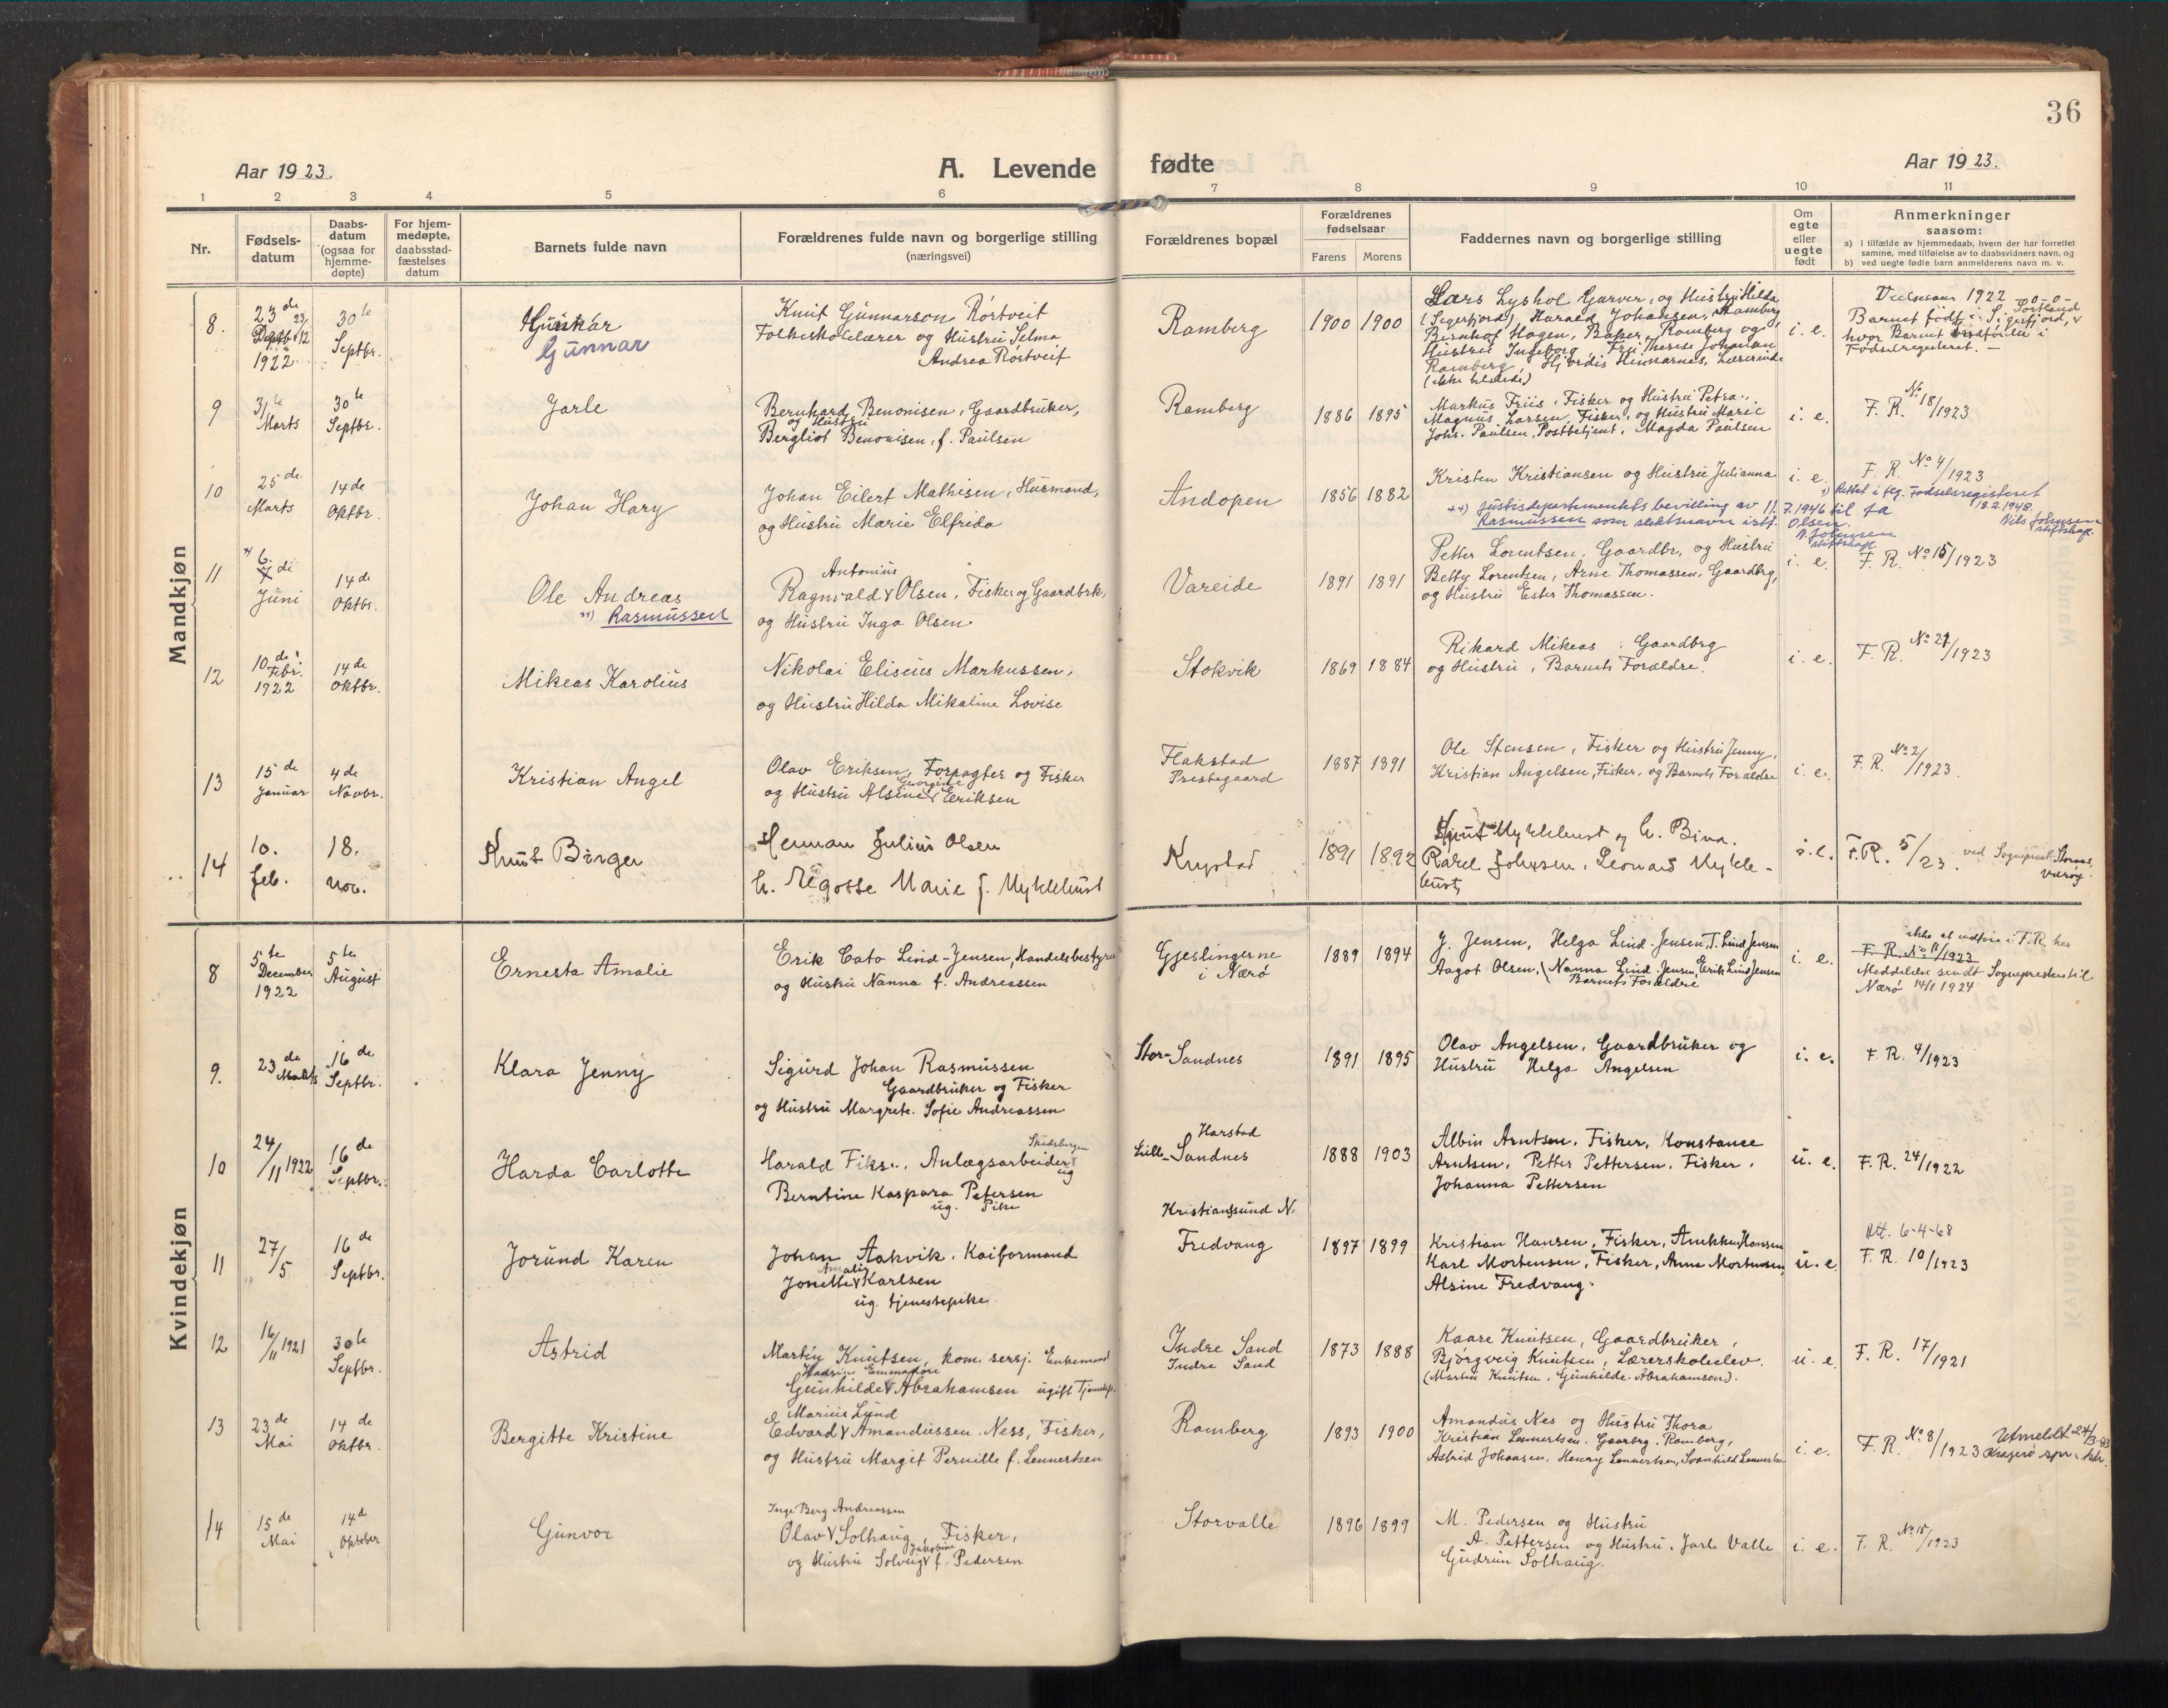 36
Aar 1923.
A. Levende fødte
Aar 1923.
1 2 3 4 5 6 7 8 9 10 11
Nr.
Fødsels-
datum
Daabs-
datum
(ogsaa for
hjemme-
døpte)
For hjem-
medøpte,
daabsstad-
fæstelses
datum
Barnets fulde navn
Forældrenes fulde navn og borgerlige stilling
(næringsvei)
Forældrenes bopæl
Forældrenes
fødselsaar
Farens Morens
Faddernes navn og borgerlige stilling
Om
egte
eller
uegte
født
Anmerkninger
saasom:
a) i tilfælde av hjemmedaab, hvem der har forrettet
samme, med tilføielse av to daabsvidners navn, og
b) ved uegte fødte barn anmelderens navn m. v.
Mandkjøn
8.
23de
1922
30te
Septbr.
Gunnar
Gunnar
Knut Gunnarson Rörtveit
Folkeskolelærer og Hustru Selma
Andrea Rörtveit
Ramberg
1900 1900
Lars Lyshol Garver, og Hustru Hilda
(Sigerfjord), Harald Johansen, Ramberg
Bernhof Hagen, Baker, Ramberg og
Hustru Ingeborg, Fru Therese Johansen
Ramberg, Hjørdis Heinarnes, Lærerinde
(ikke tilstede)
i. e.
Vielsesaar 1922
Barnet født i Sigerfjord,
Sortland
hvor Barnet er indførte i
Fødselregisteret. —
9
31te
Marts
30te
Septbr.
Jarle
Bernhard Benonisen, Gaardbruker,
og Hustru
Bergliot Benonisen, f. Paulsen
Ramberg
1886 1895
Markus Friis, Fisker og Hustru Petra.,
Magnus Larsen, Fisker, og Hustru Marie
Johs. Paulsen, Postbetjent, Magda Paulsen
i. e.
F. R. No 18/1923
10
25de
Marts
14de
Oktbr.
Johan Hary
Johan Eilert Mathisen, Husmand,
og Hustru Marie Elfrida
Andopen
1856 1882
Kristen Kristiansen og Hustru Julianna
i. e.
F. R. No 4/1923
x) Rettet i flg. Fødselsregisteret
18.2.1948.
Nils Johnsen
xx) Justisdepartementets bevilling av 11.7.1946 til å ta
Rasmussen som slektsnavn istf. Olsen.
N. Johnsen
11
x) 6. di
Juni
14de
Oktbr.
Ole Andreas
xx) Rasmussen
Antonius
Ragnvald v Olsen, Fisker og Gaardbrk.
og Hustru Inga Olsen.
Vareide
1891 1891
Petter Lorentsen, Gaardbr, og Hustru
Betty Lorentsen, Arne Thomassen, Gaardbrg,
og Hustru Ester Thomassen.
i. e.
F. R. No 15/1923
12
10de
Febr.
1922
14de
Oktbr.
Mikeas Karolius
Nikolai Eliseus Markussen,
og Hustru Hilda Mikaline Lovise
Stokvik
1869 1884
Rikard Mikeas, Gaardbrg
og Hustru, Barnets Forældre.
i. e.
F. R. No 21/1923
13
15de
Januar
4de
Novbr.
Kristian Angel
Olav Eriksen, Forpagter og Fisker
Georgine
og Hustru Alsine v Eriksen
Flakstad
Prestegaard
1887 1891
Ole Stensen, Fisker og Hustru Jenny,
Kristian Angelsen, Fisker, og Barnets Forældre
i. e.
F. R. No 2/1923.
14
10.
feb.
18.
nov.
Knut Birger
Herman Julius Olsen
h. Regosse Marie f. Myklebust
Krystad
1891 1892
Knut Myklebust og h. Bina.
Karel Johnsen, Leonard Mykle-
bust,
i. e.
F. R. 5/23. ved Sogneprest Storaas
Værøy.
Kvindekjøn
8
5te
December
1922
5te
August
Ernesta Amalie
Erik Cato Lind-Jensen, Handelsbestyrer
og Hustru Nanna f. Andreassen
Gjeslingerne
i Nærø
1889 1894
J. Jensen, Helga Lind-Jensen, T. Lind Jensen
Aagot Olsen, (Nanna Lind Jensen, Erik Lind Jensen
Barnets Forældre
i. e.
ikke at indføre i F.R. her
F. R. No 11/1923
Meddelelse sendt Sognepresten til
Nærø 14/1 1924
9.
23de
Marts
16de
Septbr.
Klara Jenny
Sigurd Johan Rasmussen
Gaardbruker og Fisker
og Hustru Margrete Sofie Andreassen
Stor-Sandnes
1891 1895
Olav Angelsen, Gaardbruker og
Hustru Helga Angelsen
i. e.
F. R. 9/1923
10
24/11 1922
16de
Septbr.
Harda Carlotte
Harald Fiks., Anlægsarbeider
ug
Berntine Kaspara Petersen
ug. Pike
Harstad
Lille-Sandnes
1888 1903
Albin Arntsen, Fisker, Konstance
Arntsen, Petter Pettersen, Fisker,
Johanna Pettersen
u. e.
F. R. 24/1922
11
27/5
16de
Septbr.
Jorund Karen
Johan Aakvik, Kaiformand
Amalie
Jonette v Karlsen
ug. tjenestepike
Kristianssund N.
Fredvang
1897 1899
Kristian Hansen, Fisker, Anekken Hansen
Karl Mortensen, Fisker, Anna Mortensen,
Alsine Fredvang.
u. e.
Att. 6-4-68
F. R. 10/1923
12
16/11 1921
30te
Septbr.
Astrid
Martin Knutsen, kom. sersj. Enkemand
Gunhilde v Abrahamsen ugift Tjenestep.
Indre Sand
Indre Sand
1873 1888
Kaare Knutsen, Gaardbruker,
Bjørgveig Knutsen, Lærerskoleelev.
(Martin Knutsen, Gunhilde Abrahamsen).
u. e.
F. R. 17/1921
13
23de
Mai
14de
Oktbr.
Bergitte Kristine
Marius Lund
Edvard v Amandussen Ness, Fisker,
og Hustru Margit Pernille f. Lennertsen
Ramberg
1893 1900
Amandus Nes og Hustru Thora
Kristian Lennertsen, Gaarbrg. Ramberg,
Astrid Johansen, Henry Lennertsen, Svanhild Lennertsen
i. e.
F. R. No 8/1923
Utmeldt 24/3-83
Kragerø spr. ktr.
14
15de
Mai
14de
Oktober
Gunvor
Inge Berg Andreassen
Olav v Solhaug, Fisker,
Jakobine
og Hustru Solveig v f. Pedersen
Storvalle
1896 1899
M. Pedersen og Hustru
A. Pettersen og Hustru, Jarle Valle
Gudrun Solhaug.
i. e.
F. R. No 15/1923